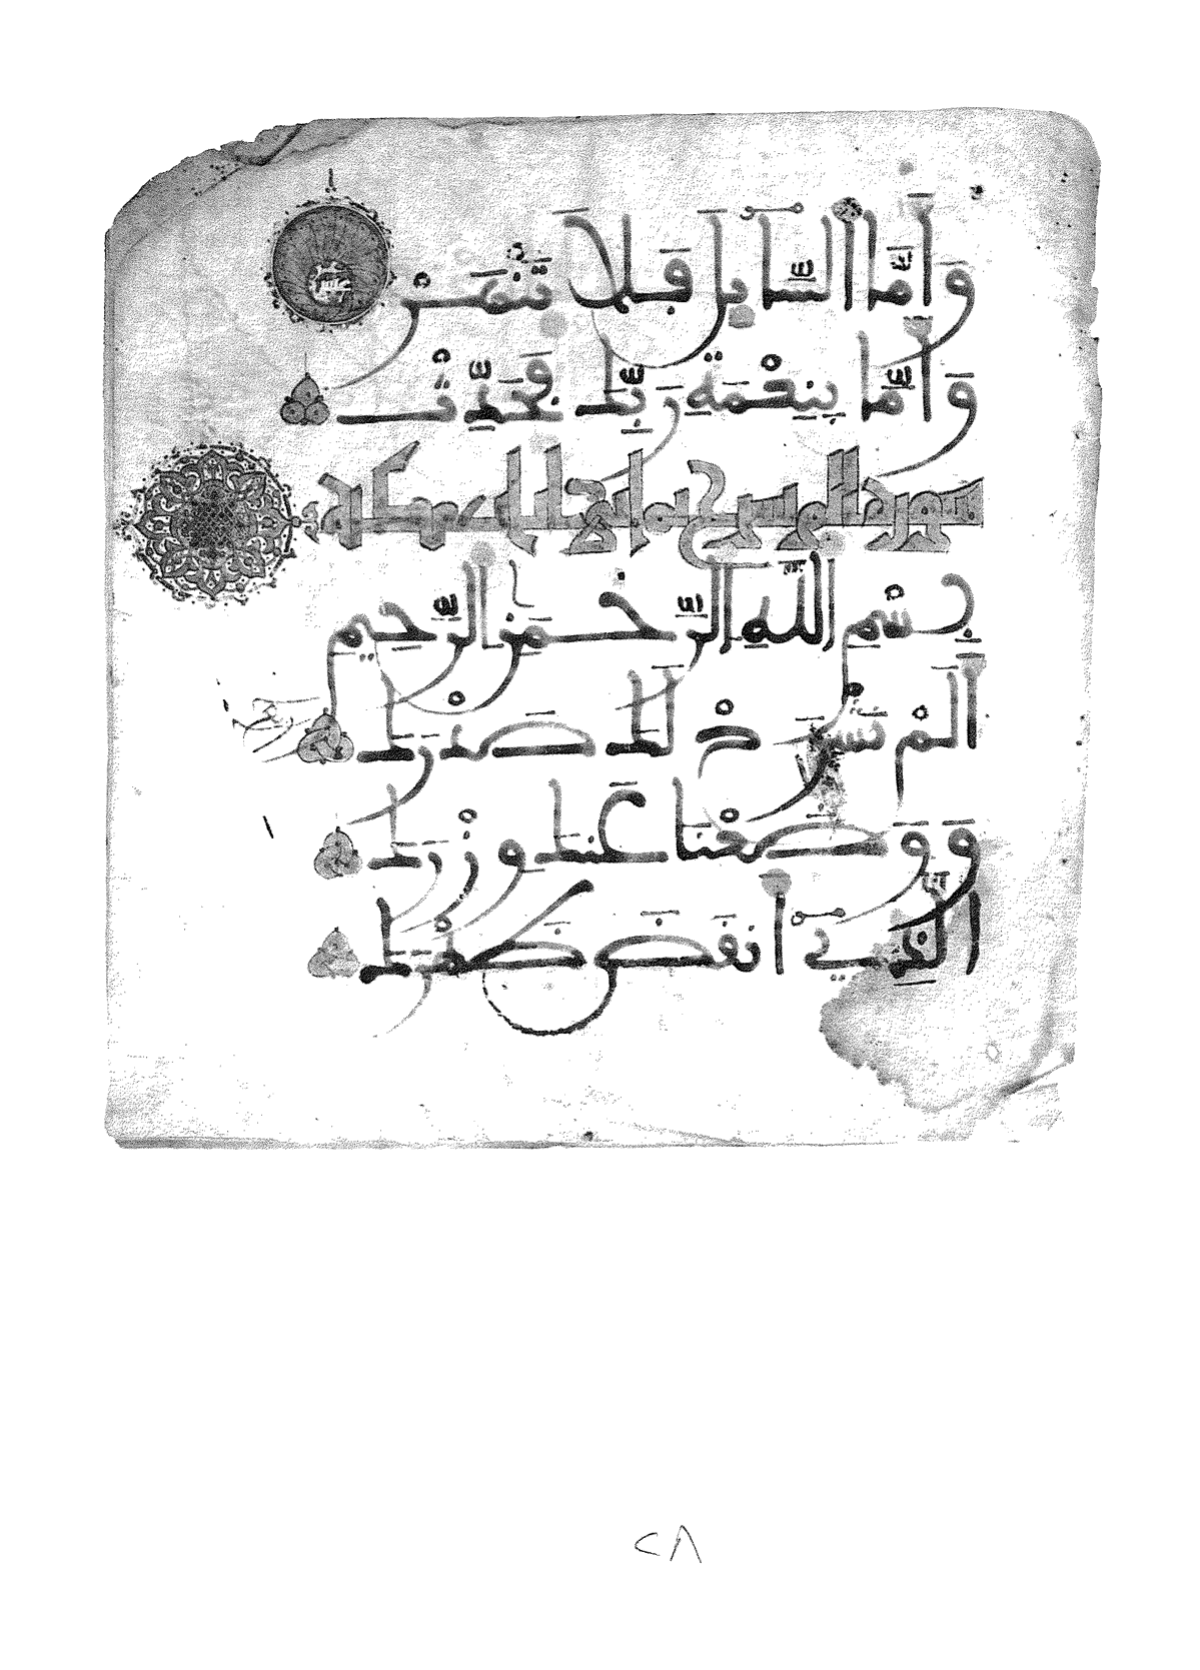 وَأَمَّا السَّآئِلَ فَلَا تَنْهَرْ عشر
وَأَمَّا بِنِعْمَةِ رَبِّكَ فَحَدِّثْ
سورة الم نشرح ثماني ايات مكية
بِسْمِ اللَّهِ الرَّحْمَنِ الرَّحِيمِ
أَلَمْ نَشْرَحْ لَكَ صَدْرَكَ
وَوَضَعْنَا عَنكَ وِزْرَكَ
الَّذِي أَنقَضَ ظَهْرَكَ
٢٨